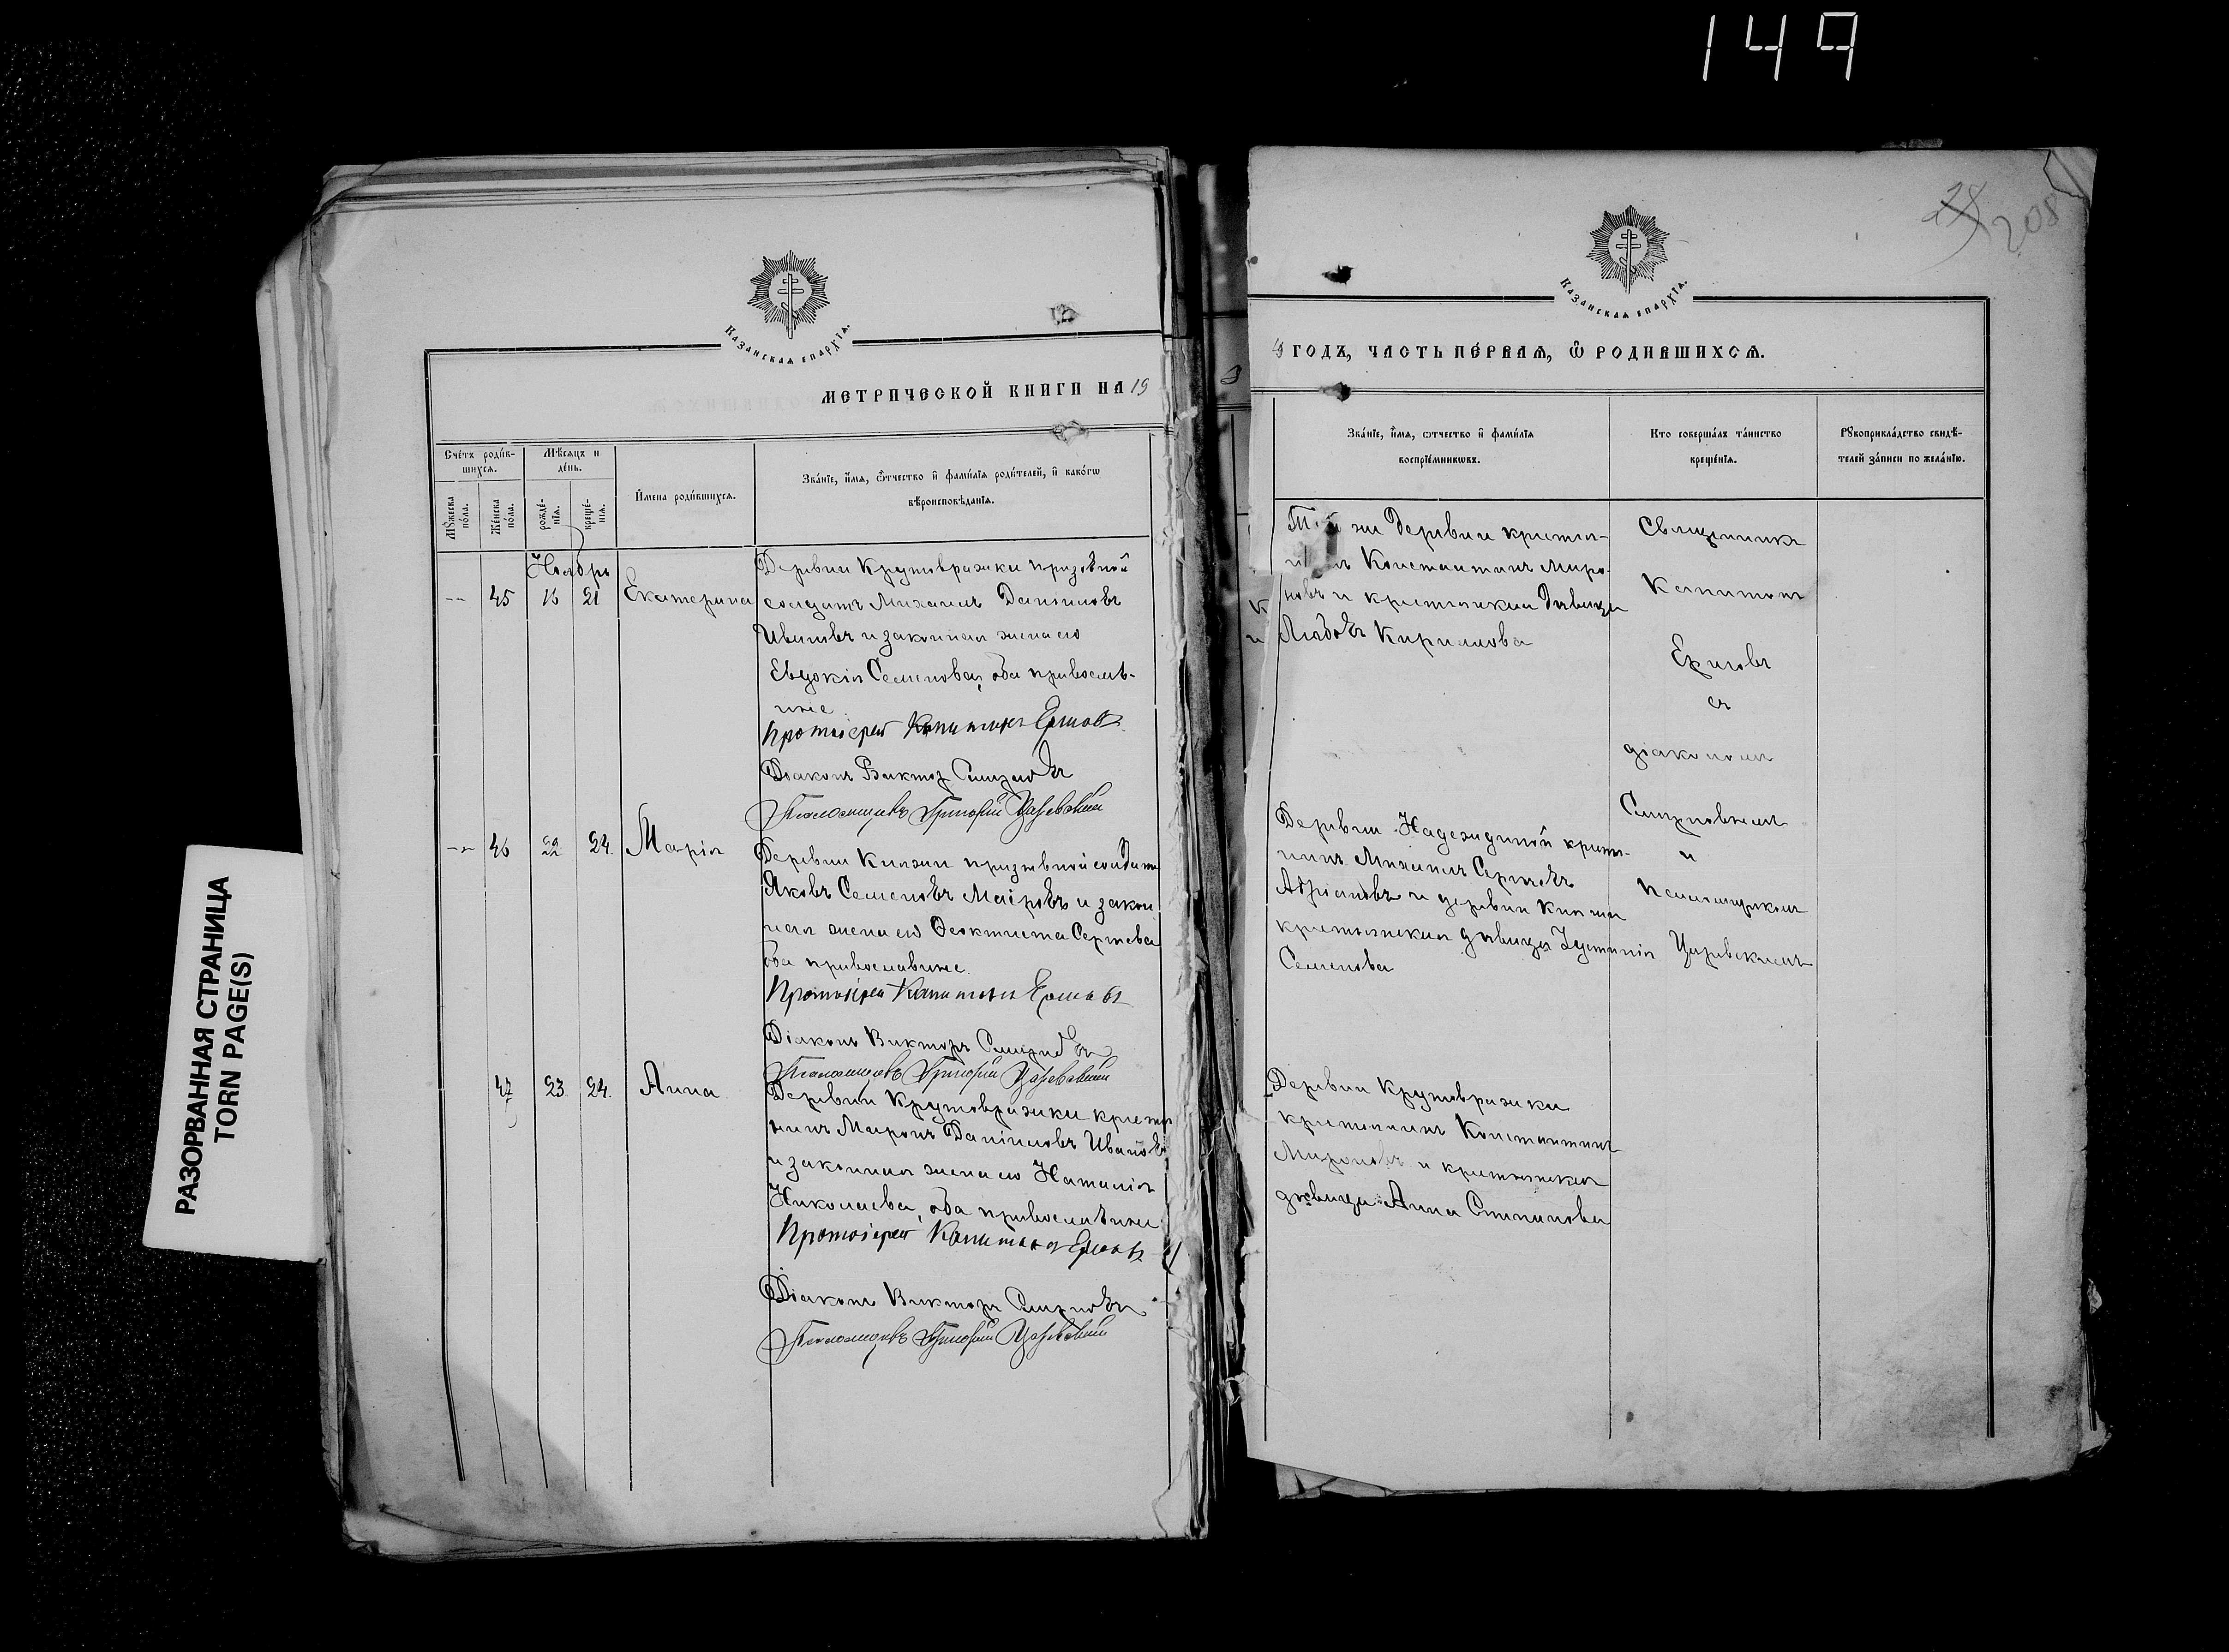 149
РАЗОРВАННАЯ СТРАНИЦА
TORN PAGE(S)
Казанская епархїѧ.
МЕТРИЧЕСКОЙ КНИГИ НА 19
Сче́тъ роди́в-
шихсѧ.
Мѣ́сѧцъ и
де́нь.
Мꙋ́жеска
по́ла.
Же́нска
по́ла.
рожде́-
нїѧ.
креще́-
нїѧ.
И҆мена роди́вшихсѧ.
Зва́нїе, и҆́мѧ, ѻ҆́тчество и҆ фами́лїѧ роди́телей, и҆ како́гѡ
вѣроисповѣ́данїѧ.
Ноябрь
-- 45 16 21 Екатерина
Деревни Крутовражки призывной
солдатъ Михаилъ Данiиловъ
Ивановъ и законная жена его
Евдокiя Семенова, оба православ-
ные.
Протоiерей Капитонъ Ершовъ
Дiаконъ Викторъ Смирновъ
Псаломщикъ Григорiй Царевскiй
-- 46 22 24. Марiя
Деревни Князи призывной солдатъ
Яковъ Семеновъ и закон
ная жена его Феоктиста Сергѣева
оба православные.
Протоiерей Капитонъ Ершовъ
Дiаконъ Викторъ Смирновъ
Псаломщикъ Григорiй Царевскiй
47 23. 24. Анна
Деревни Крутовражки крестья
нинъ Миронъ Данiиловъ Ивановъ
и законная жена его Наталiя
Николаева, оба православные
Протоiерей Капитонъ Ершовъ
Дiаконъ Викторъ Смирновъ
Псаломщикъ Григорiй Царевскiй
208
Казанская епархїѧ.
ГОДЪ, ЧАСТЬ ПЕ́РВАѦ, Ѽ РОДИВШИХСѦ.
Зва́нїе, и҆́мѧ, ѻтчество и҆ фами́лїѧ
воспрїе́мникѡвъ.
Кто соверша́лъ та́инство
креще́нїѧ.
Рꙋкоприкла́дство свидѣ́-
телей за́писи по жела́нїю.
Той же деревни крестья-
нинъ Константинъ Миро-
новъ и крестьянская дѣвица
Любовь Кириллова
Священникъ
Капитонъ
Ершовъ
съ
дiакономъ
Смирновымъ
и
псаломщикомъ
Царевскимъ
Деревни Надеждиной крестья-
нинъ Михаилъ Сергѣевъ
и деревни Князи
крестьянская дѣвица Iустинiя
Семенова
Деревни Крутовражки
крестьянинъ Константинъ
Мироновъ и крестьянская
дѣвица Анна Степанова